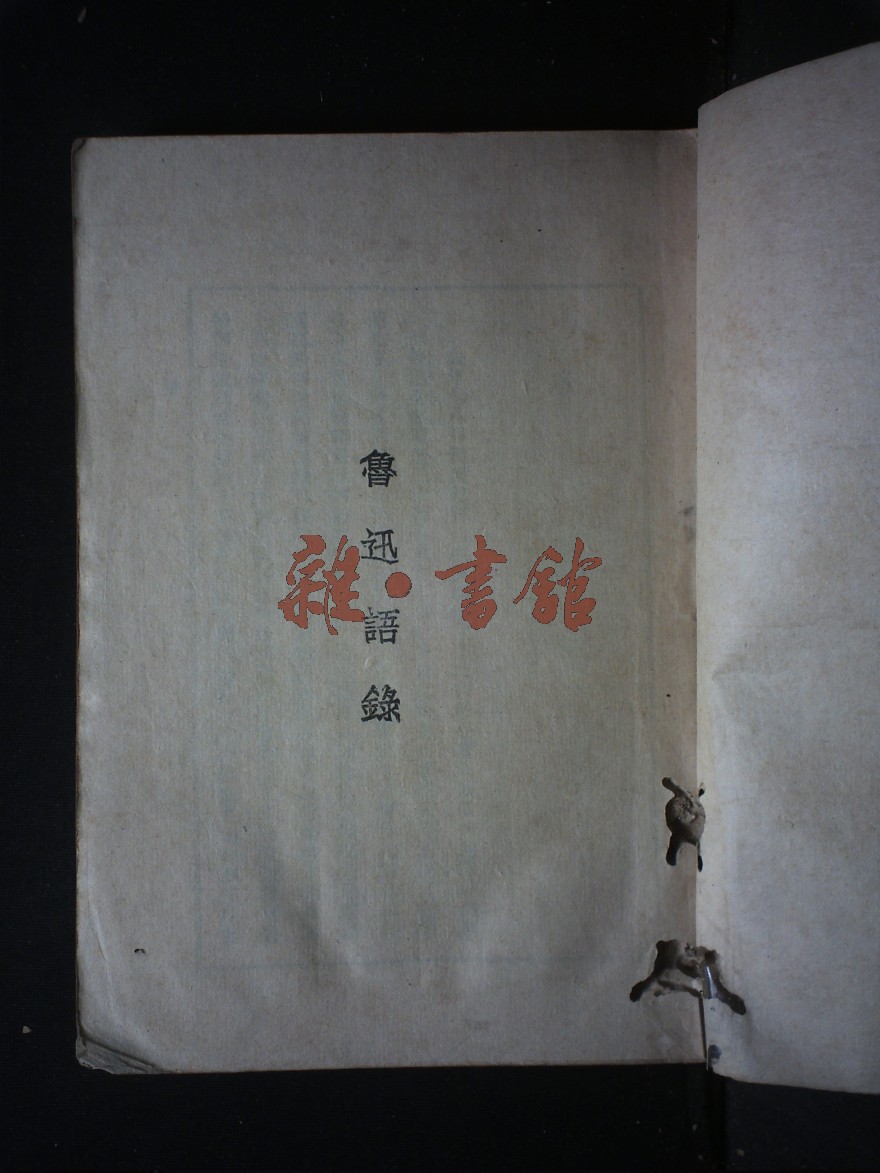 魯迅語錄
雜·書館